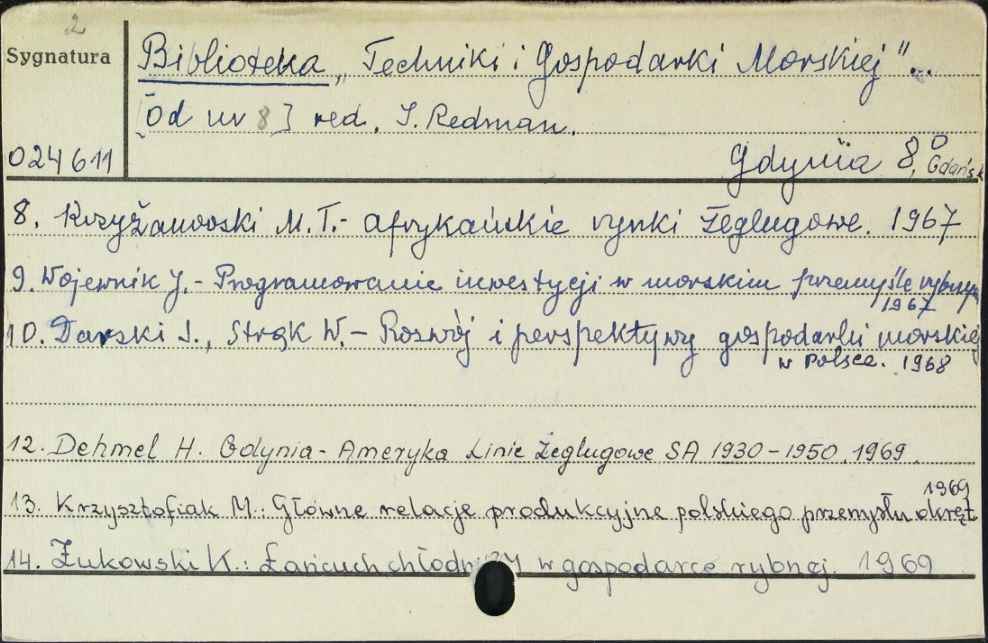 2
Sygnatura
Biblioteka „Techniki i Gospodarki Morskiej”...
[od nr 8] red. J. Redman.
024611
Gdynia 8°, Gdańsk
8. Krzyżanowski M. T.- Afrykańskie rynki żeglugowe. 1967
9. Wojewnik J.- Programowanie inwestycji w morskim przemyśle rybnym
1967
10. Darski J., Strąk W.- Rozwój i perspektywy gospodarki morskiej
w Polsce. 1968
12. Dehmel H. Gdynia-Ameryka Linie Żeglugowe SA 1930-1950. 1969
1969
13. Krzysztofiak M.: Główne relacje produkcyjne polskiego przemysłu okręt
14. Żukowski K.: Łańcuch chłodniczy w gospodarce rybnej. 1969